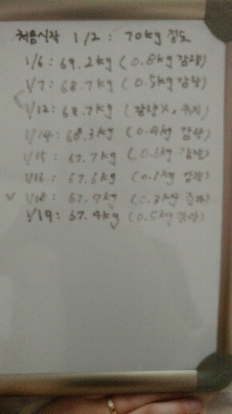 처음시작 1/2 : 70kg 정도
1/6 : 69.2kg (0.8kg 감량)
1/7 : 68.7kg (0.5kg 감량)
1/12 : 68.7kg (감량X, 유지)
1/14 : 68.3kg (0.4kg 감량)
1/15 : 67.7kg (0.6kg 감량)
1/16 : 67.6kg (0.1kg 감량)
v 1/18 : 67.9kg (0.3kg 증가)
1/19 : 67.4kg (0.5kg 감량)